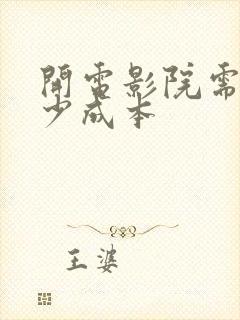 開電影院需
少成本
王婆